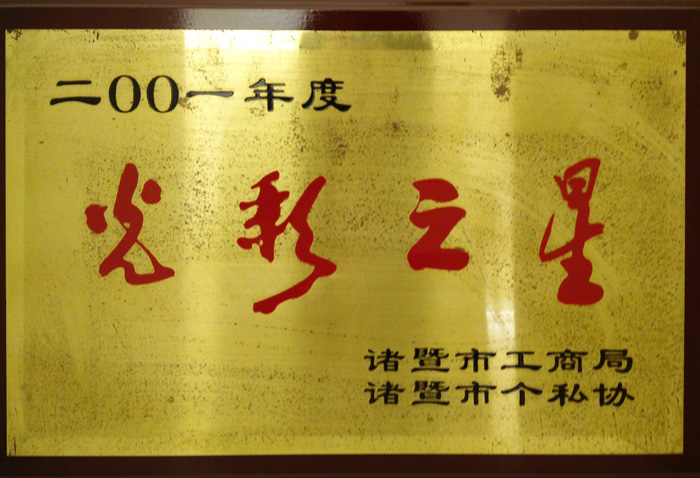 二00一年度
光彩之星
诸暨市工商局
诸暨市个私协